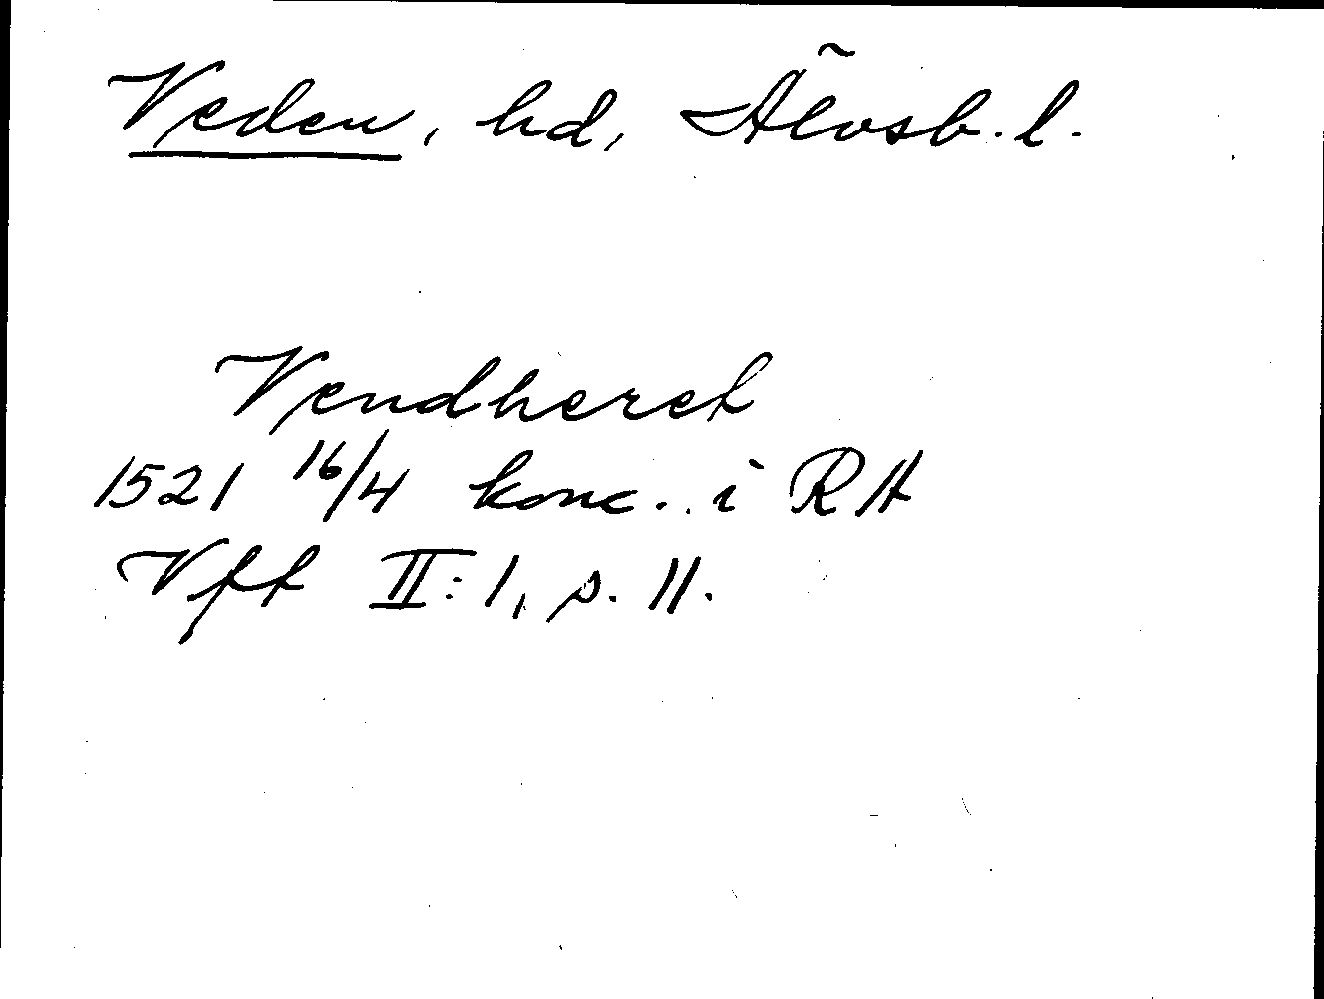 Veden, hd, Älvsb. l.
Vendheret
1521 16/4 konc. i RA
Vft II:1, s. 11.